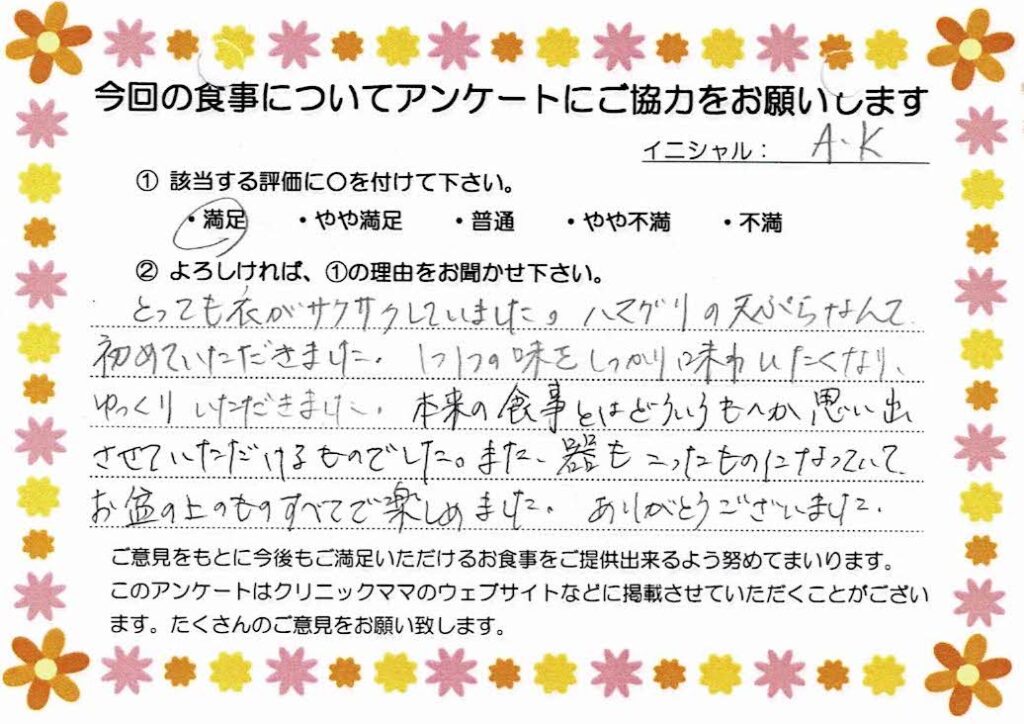 今回の食事についてアンケートにご協力をお願いします
イニシャル： A.K
① 該当する評価に〇を付けて下さい。
・満足 ・やや満足 ・普通 ・やや不満 ・不満
② よろしければ、①の理由をお聞かせ下さい。
とっても衣がサクサクしていました。ハマグリの天ぷらなんて
初めていただきました。1つ1つの味をしっかり味わいたくなり、
ゆっくりいただきました。本来の食事とはどういうものか思い出
させていただけるものでした。また、器もこったものになっていて
お盆の上のものすべてで楽しめました。ありがとうございました。
ご意見をもとに今後もご満足いただけるお食事をご提供出来るよう努めてまいります。
このアンケートはクリニックママのウェブサイトなどに掲載させていただくことがござい
ます。たくさんのご意見をお願い致します。